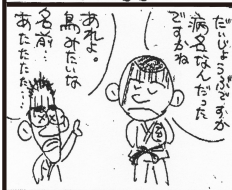 だいじょうぶですか
病名なんだった
ですかね
あれよ。
鳥みたいな
名前…
あたたたた…